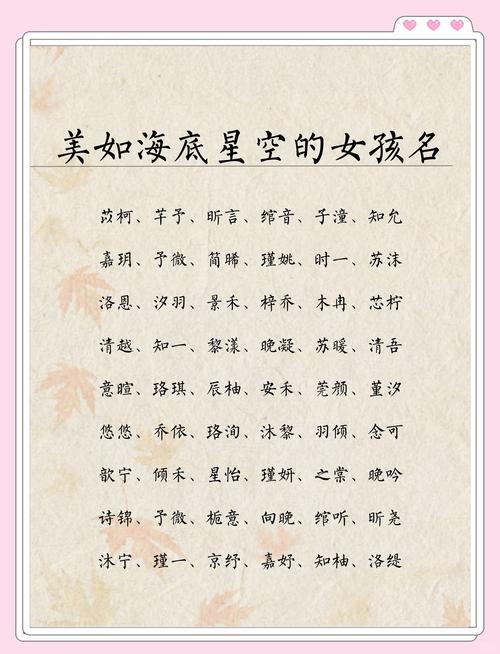 美如海底星空的女孩名
苡柯、芊予、昕言、绾音、子潼、知允
嘉玥、予微、简晞、瑾姚、时一、苏沫
洛恩、汐羽、景禾、梓乔、木冉、芯柠
清越、知一、黎漾、晚凝、苏暖、清吾
意暄、珞琪、辰柚、安禾、莞颜、堇汐
悠悠、乔依、珞洵、沐黎、羽倾、念可
歆宁、倾禾、星怡、瑾妍、之棠、晚吟
诗锦、予微、栀意、向晚、绾听、昕尧
沐宁、瑾一、京纾、嘉妤、知柚、洛缇